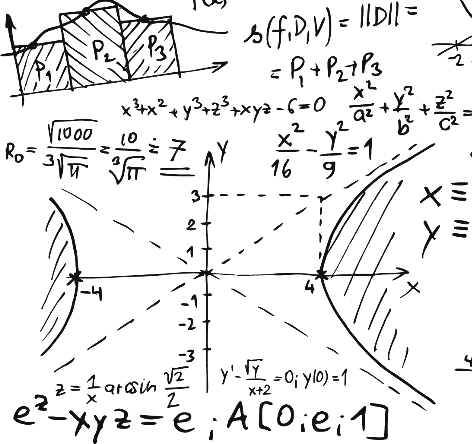 s(f,D,V) = ||D|| =
P₁ P₂ P₃
= P₁ + P₂ + P₃
-2
x³+x²+y³+z³+xyz-6=0
x²/a² + y²/b² + z²/c² =
R₀ = √1000/³√π = 10/³√π ≐ 7
x²/16 - y²/9 = 1
Y
x ≡
y ≡
3
2
1
-4
4
x
-1
-2
-3
z = 1/x arcsin √2/2
y' - √y/x+2 = 0; y(0)=1
e^z - xyz = e; A[0;e;1]